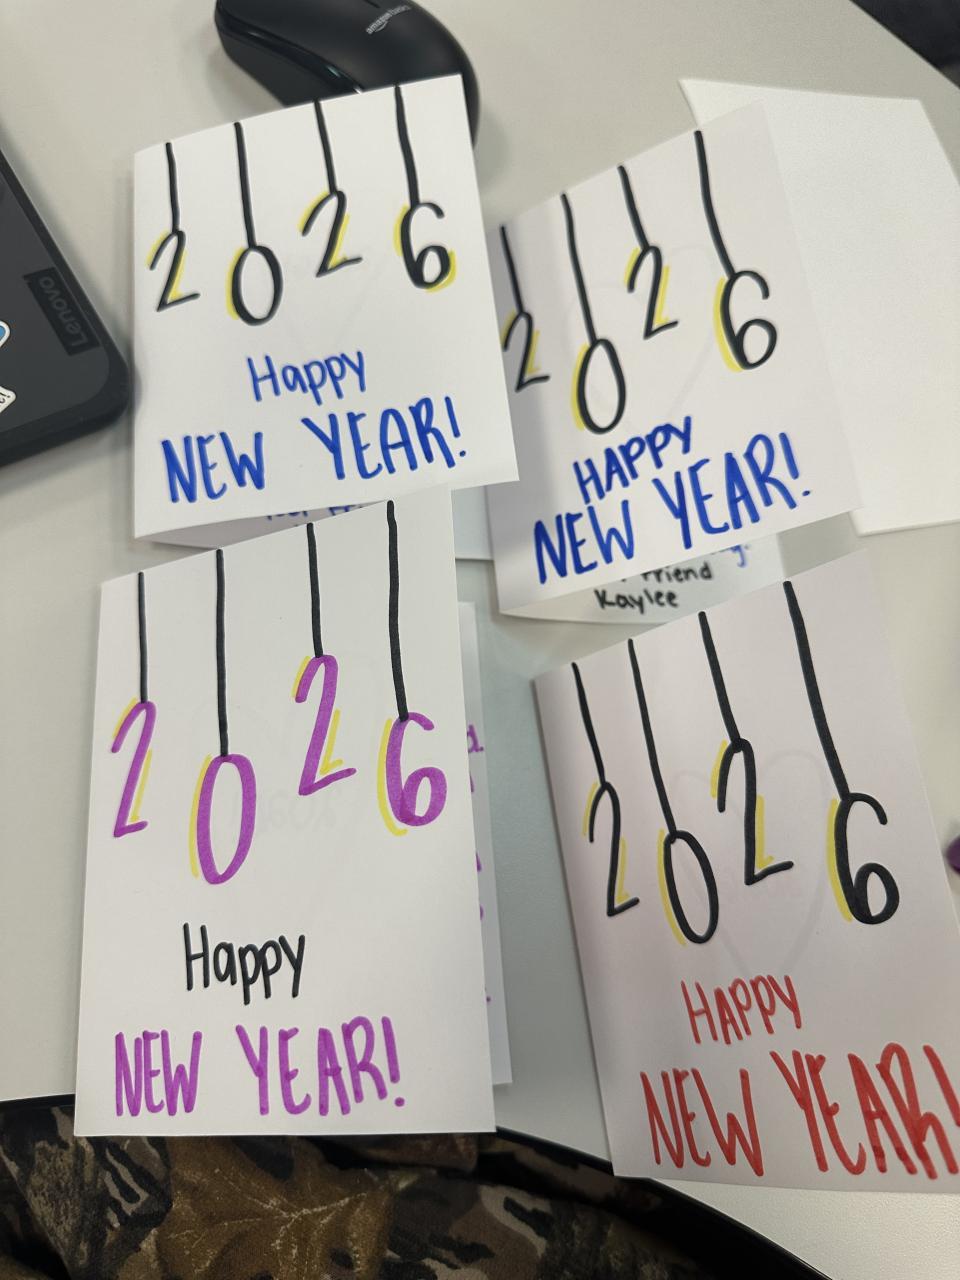 amazon basics
Lenovo
2026
Happy
NEW YEAR!
2026
HAPPY
NEW YEAR!
Friend
Kaylee
2026
Happy
NEW YEAR!
2026
HAPPY
NEW YEAR!